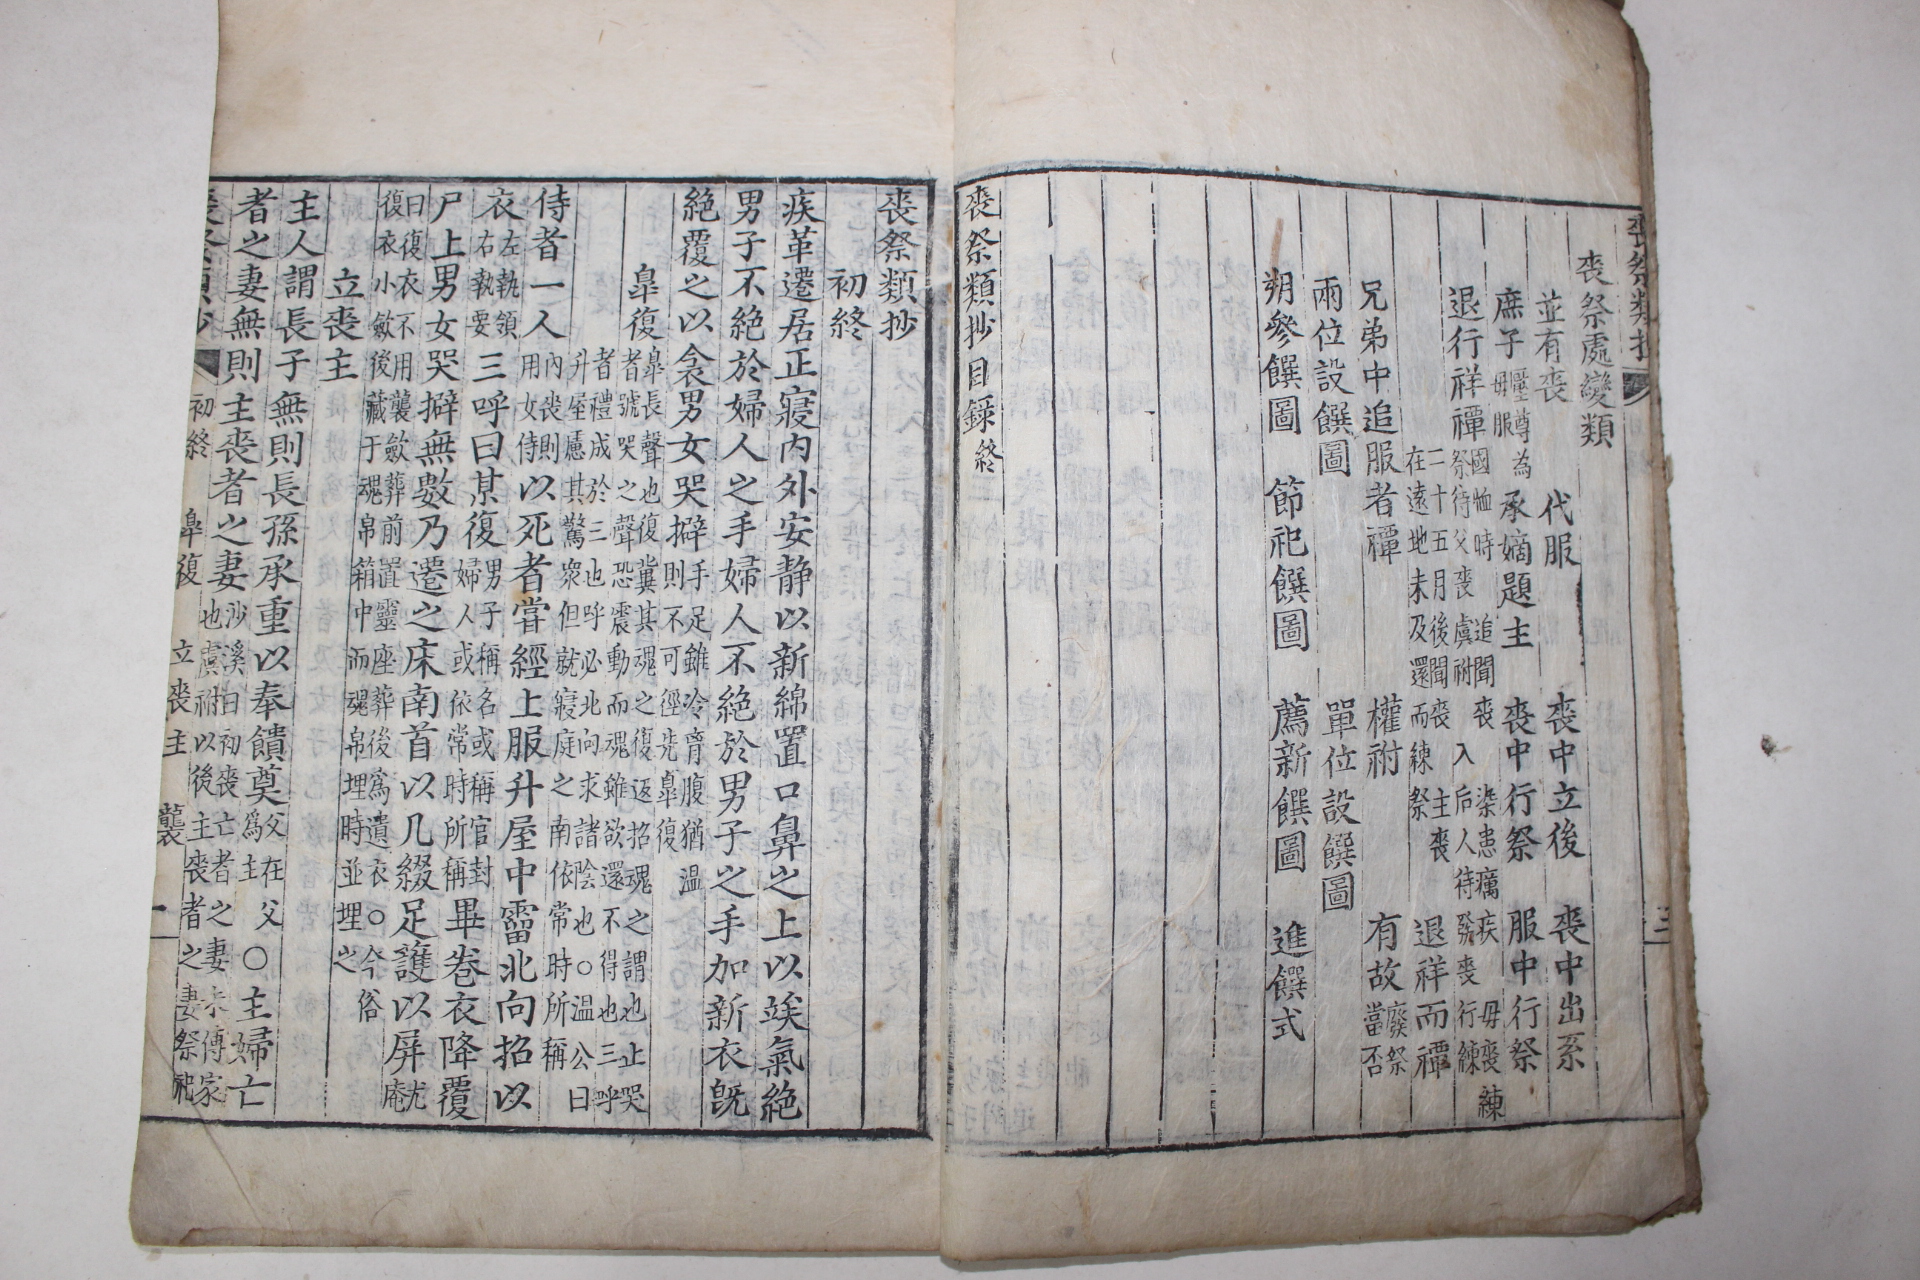 喪祭類抄 三
喪祭處變類
並有喪 代服 喪中立後 喪中出系
庶子壓尊為母服 承嫡題主 喪中行祭 服中行祭
退行祥禫 國恤時追聞喪 染患癘疾毋喪練
祭待父喪虞祔 入后人待發喪行練
二十五月後聞喪主喪 退祥而禫
在遠地未及還而練祭
兄弟中追服者禫 權祔 有故廢祭當否
兩位設饌圖 單位設饌圖
朔參饌圖 節祀饌圖 薦新饌圖 進饌式
喪祭類抄目録終
喪祭類抄
初終
疾革遷居正寢內外安静以新綿置口鼻之上以竢氣絶
男子不絶於婦人之手婦人不絶於男子之手加新衣旣
絶覆之以衾男女哭擗手足雖冷胷腹猶溫則不可徑先臯復
臯復 臯長聲也復冀其魂之復返招魂之謂也止哭
者號哭之聲恐震動而魂雖欲還不得也三呼
者禮成於三也呼必北向求諸陰也○溫公曰
升屋慮其驚衆但就寢庭之南依常時所稱
侍者一人內喪則用女侍以死者嘗經上服升屋中霤北向招以
衣左執領右執要三呼曰某復男子稱名或稱官封婦人或依常時所稱畢卷衣降覆
尸上男女哭擗無數乃遷之床南首以几綴足護以屏尤庵
曰復衣不用襲斂葬前置靈座葬後爲遺衣○今俗
復衣小斂後藏于魂帛箱中而魂帛埋時並埋之
立喪主
主人謂長子無則長孫承重以奉饋奠父在父爲主○主婦亡
者之妻無則主喪者之妻沙溪曰初喪亡者之妻未傳家也虞祔以後主喪者之妻祭祀
喪祭類抄 初終 臯復 立喪主 襲 一